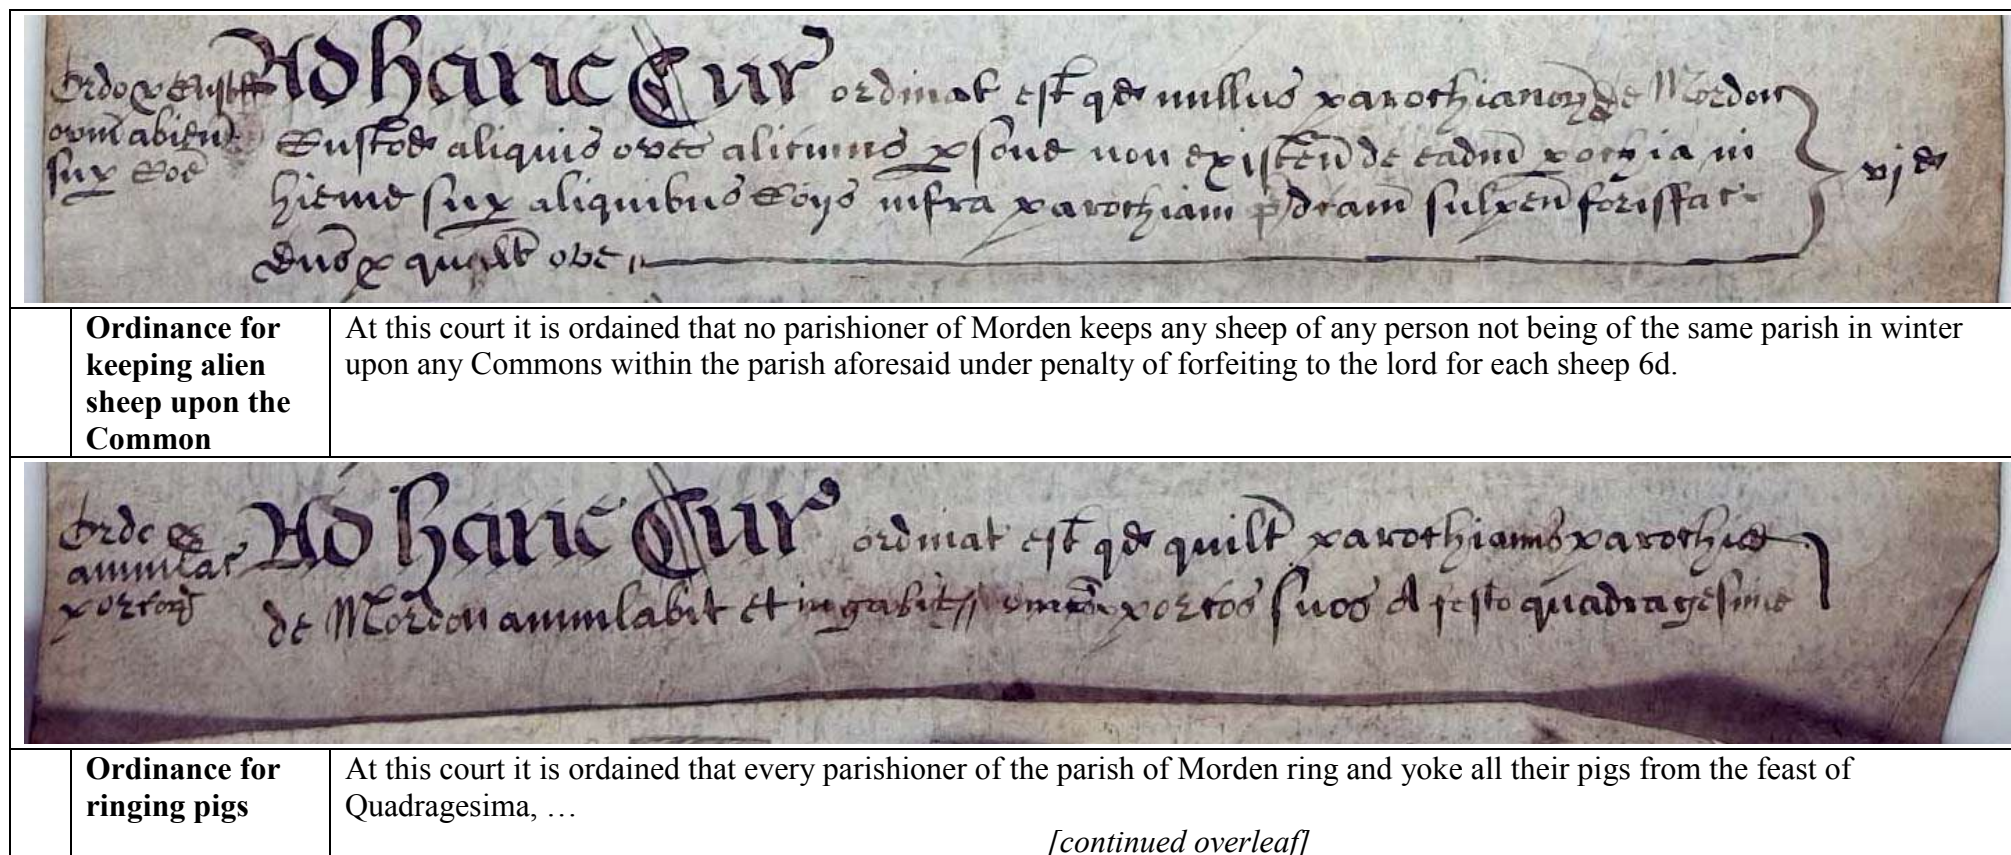 Ad hanc Cur ordinat est qd nullus parochianorz de Mordon
Custod aliquis oves alicuius psone non existen de eadm pochia in
hieme sup aliquibus Coijs infra parochiam pdcam sub pen forisfac
dno p qualt ove
vjd
ovm alien
sup Coe
Ordinance for
keeping alien
sheep upon the
Common
At this court it is ordained that no parishioner of Morden keeps any sheep of any person not being of the same parish in winter
upon any Commons within the parish aforesaid under penalty of forfeiting to the lord for each sheep 6d.
Ordo p
annulac
porcorz
Ad hanc Cur ordinat est qd quilt parochianus parochie
de Mordon annulabit et iugabit omes porcos suos A festo quadragesime
Ordinance for
ringing pigs
At this court it is ordained that every parishioner of the parish of Morden ring and yoke all their pigs from the feast of
Quadragesima, …
[continued overleaf]